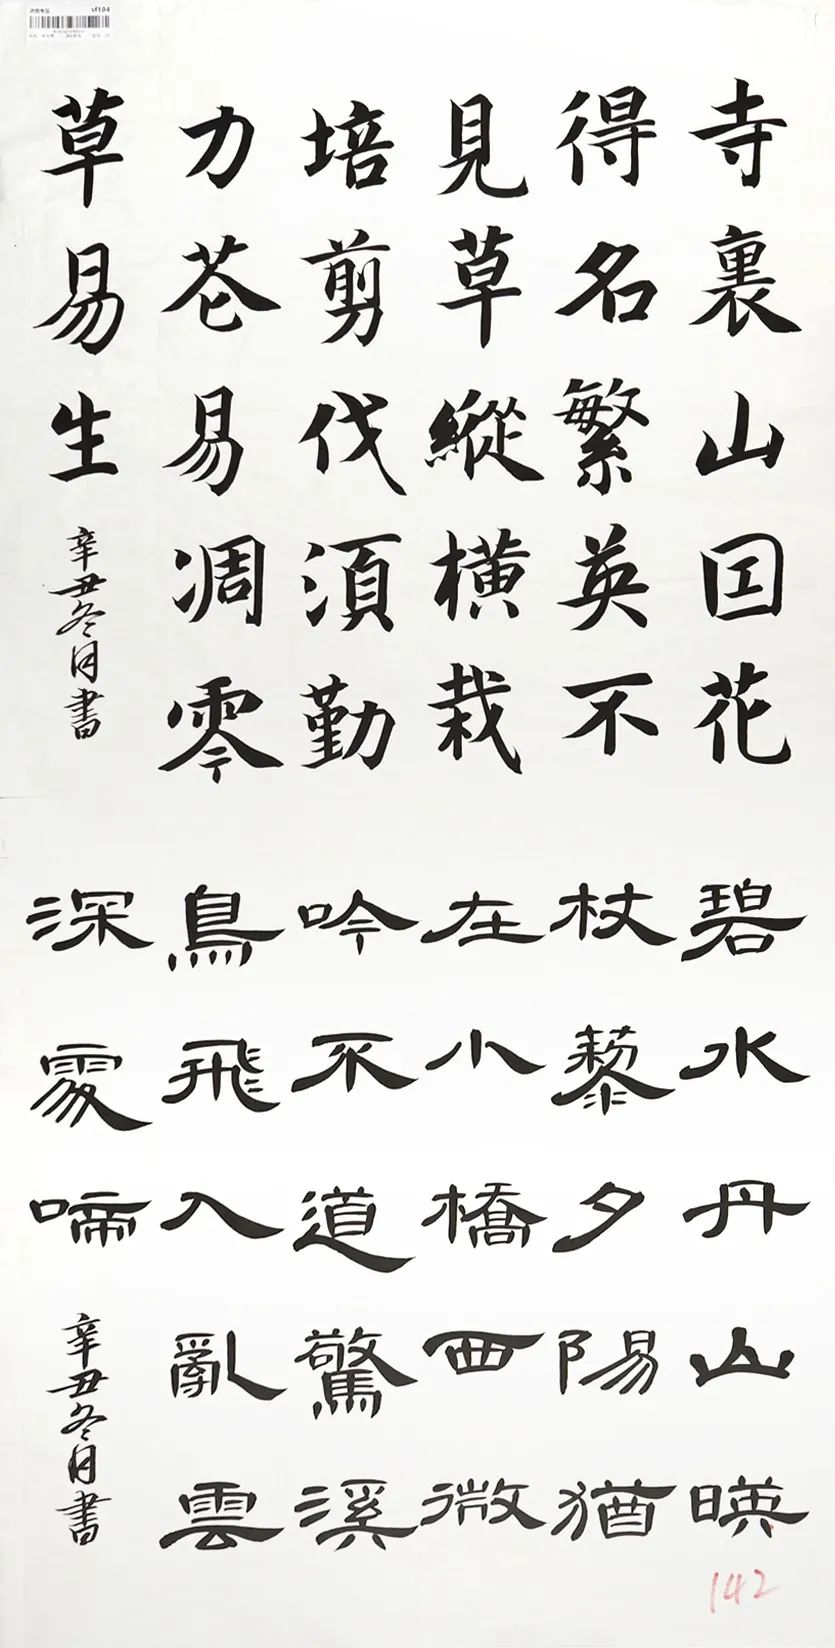 济南考区 vf104
寺裏山因花
得名繁英不
見草縱橫栽
培剪伐須勤
力花易凋零
草易生
辛丑冬月書
碧水丹山暎
杖藜夕陽猶
在小橋西微
吟不道驚溪
鳥飛入亂雲
深處啼
辛丑冬月書
142